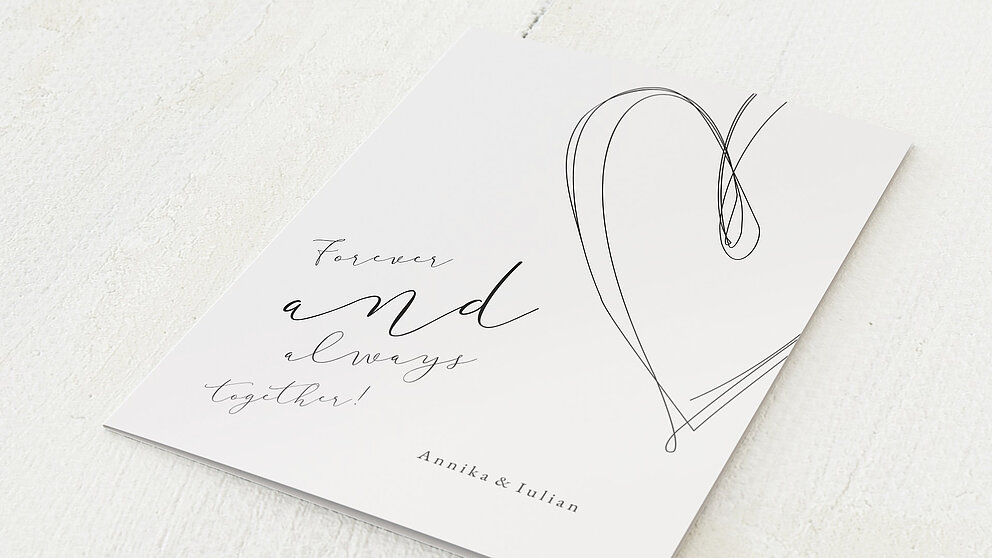 Forever
and
always
together!
Annika & Iulian